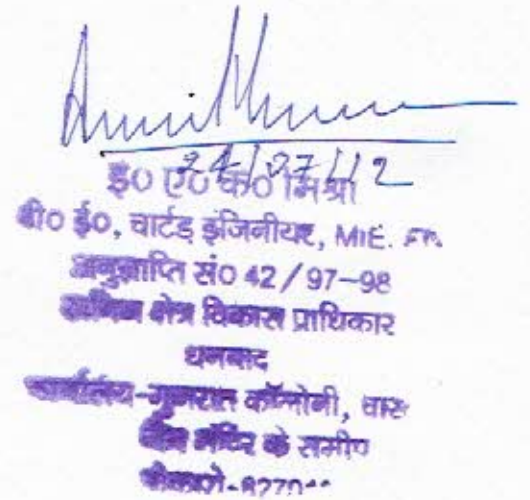 24/07/12
इ० ए० के० मिश्रा
बी० ई०, चार्टड इंजिनीयर, MIE.
अनुज्ञाप्ति सं० 42/97-98
खनिज क्षेत्र विकास प्राधिकार
धनबाद
कार्यालय-गुजरात कॉलोनी, चास
मंदिर के समीप
बोकारो-8270